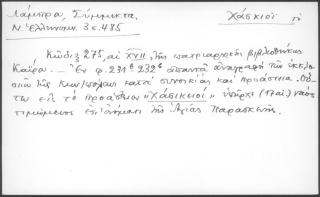 Λάμπρου, Σύμμικτα. Χάσκιοϊ τὸ
Ν. Ἑλληνομν. 3ος 485
Κῶδιξ 275, αἰ XVII, τῆς πατριαρχικῆς βιβλιοθήκης
Καΐρου. — Ἐν φ. 231β 232β ἀπαντᾷ ἀναγραφὴ τῶν ἐκκλη
σιῶν τῆς Κων/πόλεως κατὰ συνοικίας καὶ προάστια. Οὕ
τω εἰς τὸ προάστειον "Χάσικιοϊ" ὑπῆρχε (17 αἰ.) ναὸς
τιμώμενος ἐπ' ὀνόματι τῆς Ἁγίας Παρασκευῆς.